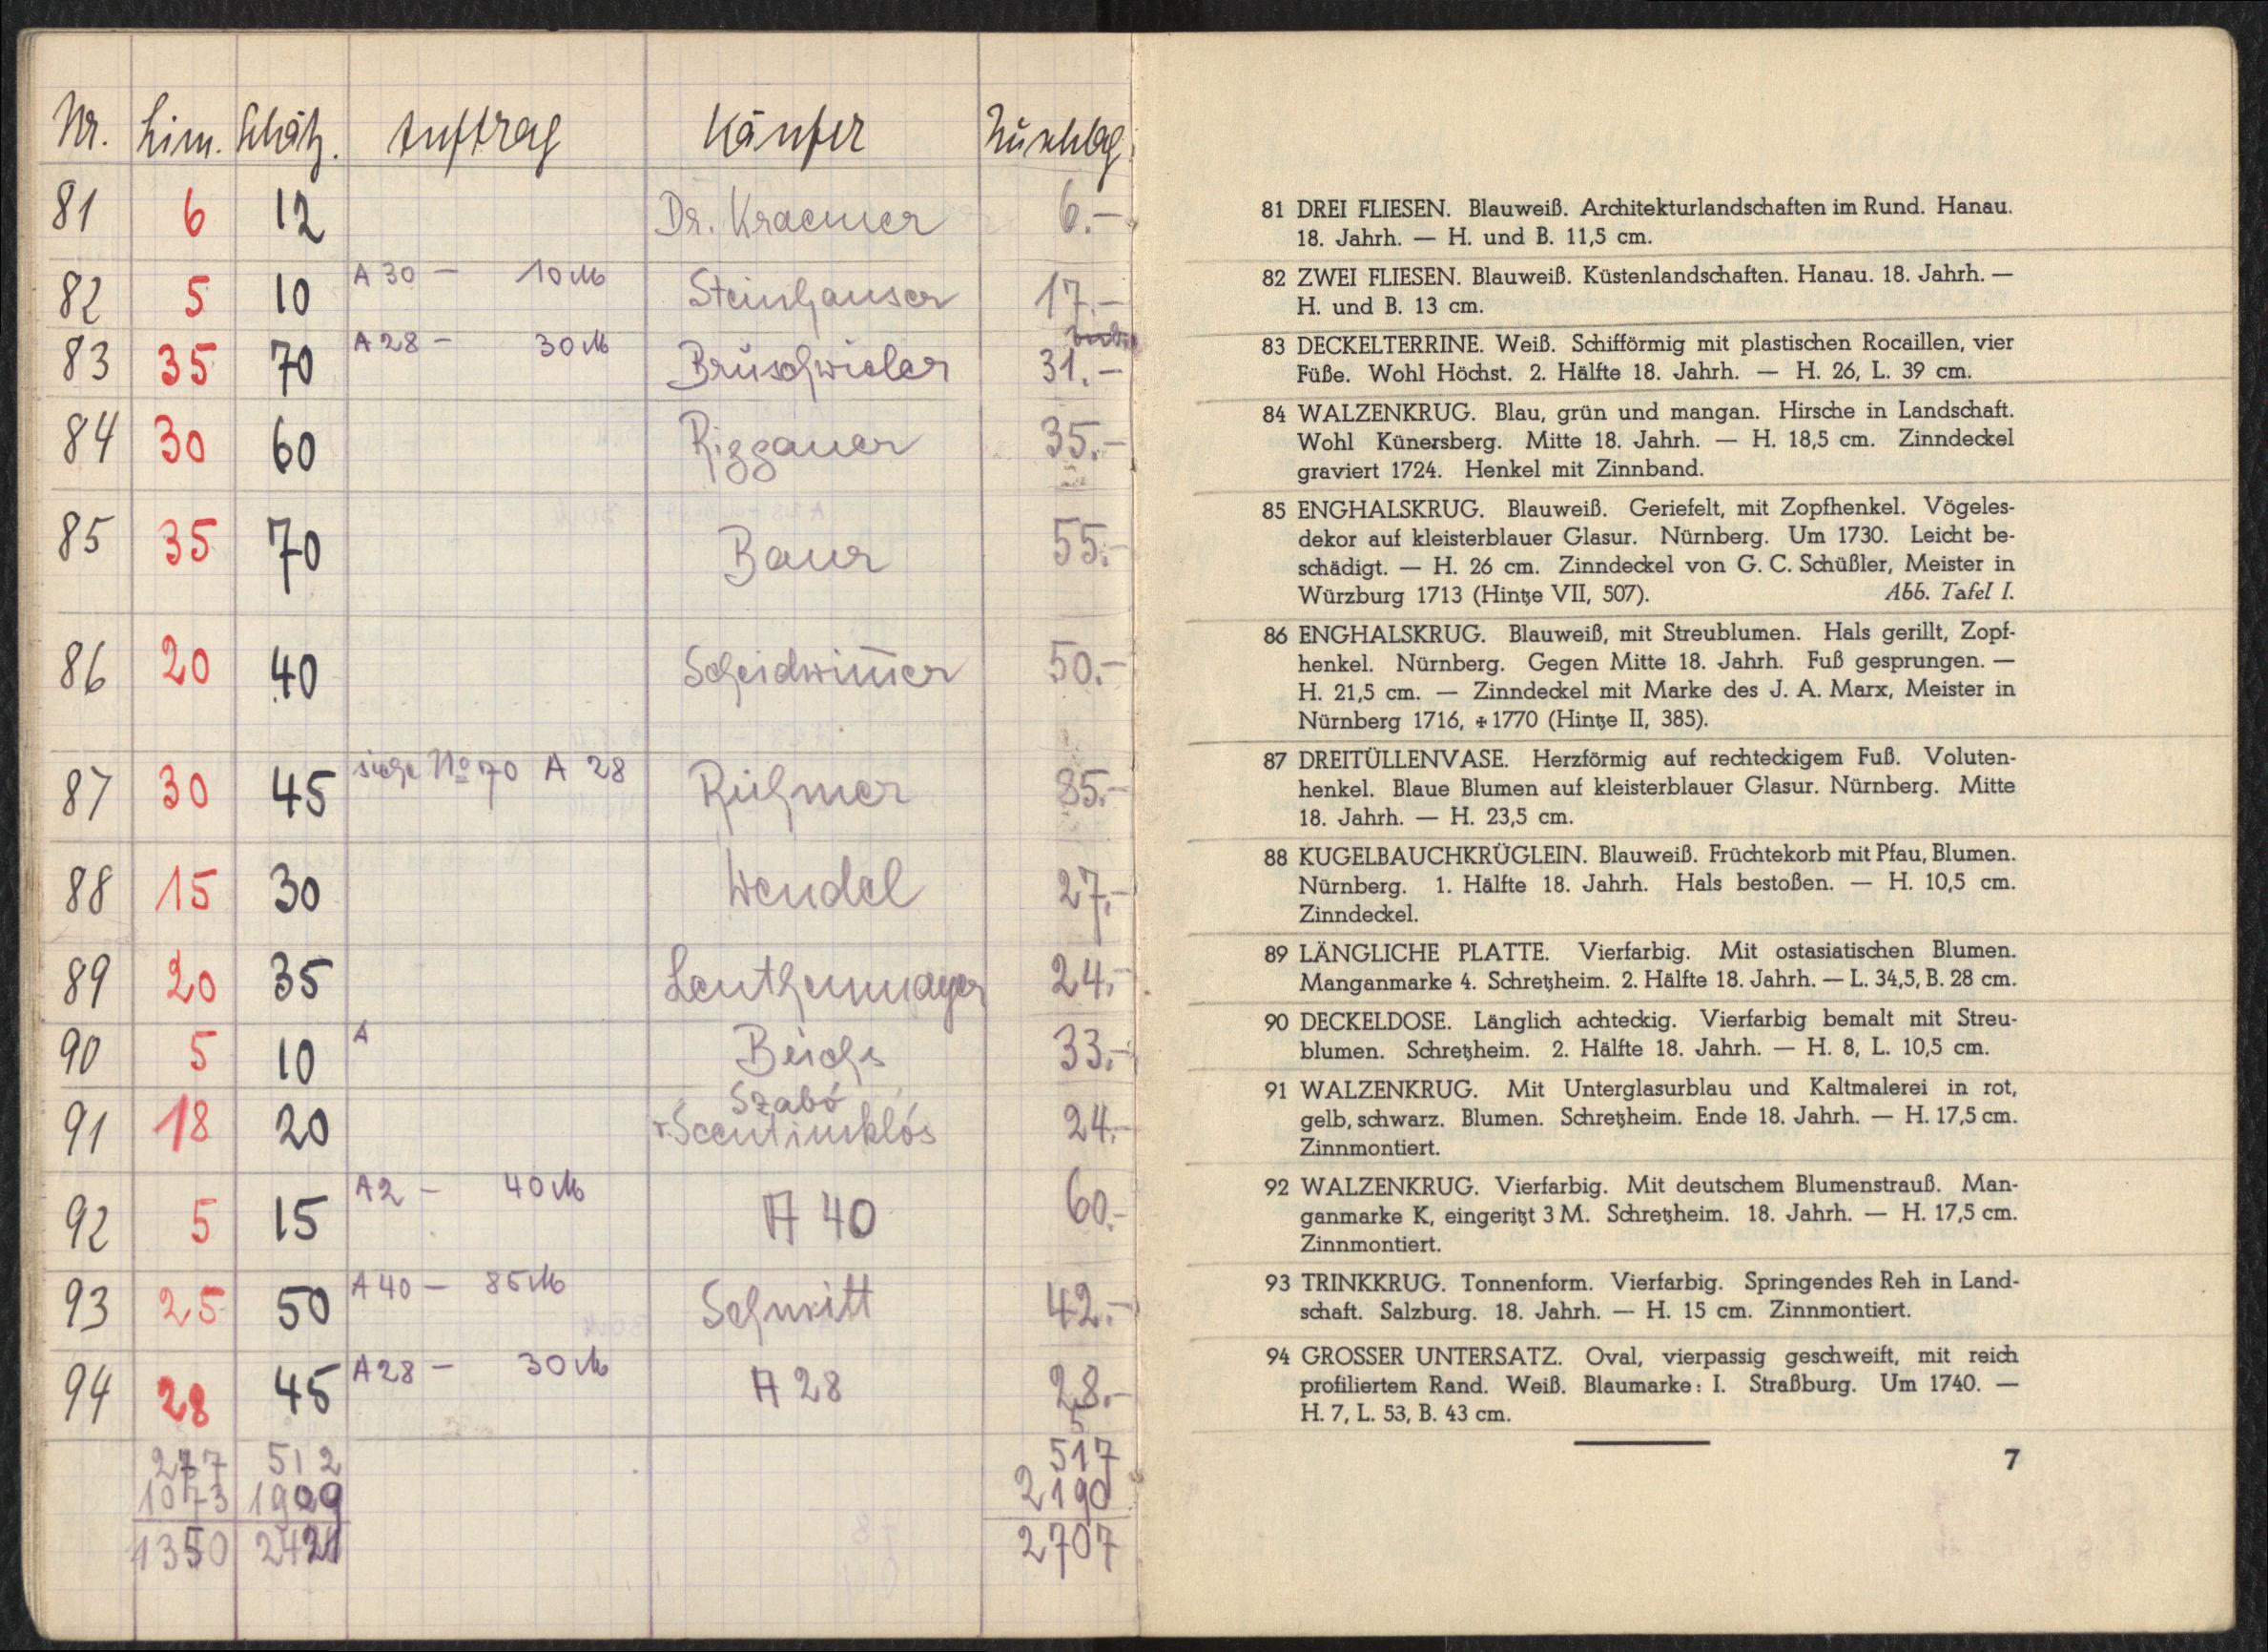 Nr. Lim. Schätz. Auftrag Käufer Zuschlag
81 6 12 Dr. Kraemer 6.-
82 5 10 A 30 - 10 M Steinhauser 17.-
83 35 70 A 28 - 30 M Brüschwieler 31.-
84 30 60 Riggauer 35.-
85 35 70 Baur 55.-
86 20 40 Scheidwim̄er 50.-
87 30 45 siehe No 70 A 28 Rühmer 85.-
88 15 30 Wendel 27.-
89 20 35 Leuthenmayer 24.-
90 5 10 A Beichs 33.-
91 18 20 Szabó
v. Scentimklós 24.-
92 5 15 A 2 - 40 M A 40 60.-
93 25 50 A 40 - 85 M Schmitt 42.-
94 28 45 A 28 - 30 M A 28 28.-
5
277 512 517
1073 1909 2190
1350 2421 2707
81 DREI FLIESEN. Blauweiß. Architekturlandschaften im Rund. Hanau.
18. Jahrh. — H. und B. 11,5 cm.
82 ZWEI FLIESEN. Blauweiß. Küstenlandschaften. Hanau. 18. Jahrh. —
H. und B. 13 cm.
83 DECKELTERRINE. Weiß. Schifförmig mit plastischen Rocaillen, vier
Füße. Wohl Höchst. 2. Hälfte 18. Jahrh. — H. 26, L. 39 cm.
84 WALZENKRUG. Blau, grün und mangan. Hirsche in Landschaft.
Wohl Künersberg. Mitte 18. Jahrh. — H. 18,5 cm. Zinndeckel
graviert 1724. Henkel mit Zinnband.
85 ENGHALSKRUG. Blauweiß. Geriefelt, mit Zopfhenkel. Vögeles-
dekor auf kleisterblauer Glasur. Nürnberg. Um 1730. Leicht be-
schädigt. — H. 26 cm. Zinndeckel von G. C. Schüßler, Meister in
Würzburg 1713 (Hintze VII, 507). Abb. Tafel I.
86 ENGHALSKRUG. Blauweiß, mit Streublumen. Hals gerillt, Zopf-
henkel. Nürnberg. Gegen Mitte 18. Jahrh. Fuß gesprungen. —
H. 21,5 cm. — Zinndeckel mit Marke des J. A. Marx, Meister in
Nürnberg 1716, ✠ 1770 (Hintze II, 385).
87 DREITÜLLENVASE. Herzförmig auf rechteckigem Fuß. Voluten-
henkel. Blaue Blumen auf kleisterblauer Glasur. Nürnberg. Mitte
18. Jahrh. — H. 23,5 cm.
88 KUGELBAUCHKRÜGLEIN. Blauweiß. Früchtekorb mit Pfau, Blumen.
Nürnberg. 1. Hälfte 18. Jahrh. Hals bestoßen. — H. 10,5 cm.
Zinndeckel.
89 LÄNGLICHE PLATTE. Vierfarbig. Mit ostasiatischen Blumen.
Manganmarke 4. Schretzheim. 2. Hälfte 18. Jahrh. — L. 34,5, B. 28 cm.
90 DECKELDOSE. Länglich achteckig. Vierfarbig bemalt mit Streu-
blumen. Schretzheim. 2. Hälfte 18. Jahrh. — H. 8, L. 10,5 cm.
91 WALZENKRUG. Mit Unterglasurblau und Kaltmalerei in rot,
gelb, schwarz. Blumen. Schretzheim. Ende 18. Jahrh. — H. 17,5 cm.
Zinnmontiert.
92 WALZENKRUG. Vierfarbig. Mit deutschem Blumenstrauß. Man-
ganmarke K, eingeritzt 3 M. Schretzheim. 18. Jahrh. — H. 17,5 cm.
Zinnmontiert.
93 TRINKKRUG. Tonnenform. Vierfarbig. Springendes Reh in Land-
schaft. Salzburg. 18. Jahrh. — H. 15 cm. Zinnmontiert.
94 GROSSER UNTERSATZ. Oval, vierpassig geschweift, mit reich
profiliertem Rand. Weiß. Blaumarke: I. Straßburg. Um 1740. —
H. 7, L. 53, B. 43 cm.
7